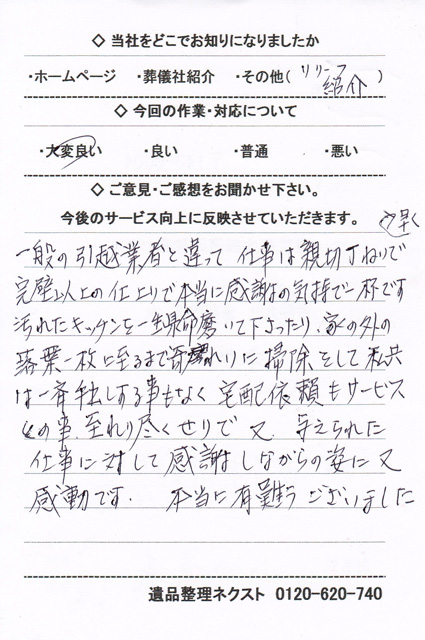 ◇ 当社をどこでお知りになりましたか
・ホームページ ・葬儀社紹介 ・その他( リリーフ 紹介 )
◇ 今回の作業・対応について
・大変良い ・良い ・普通 ・悪い
◇ ご意見・ご感想をお聞かせ下さい。
今後のサービス向上に反映させていただきます。
早く
一般の引越業者と違って 仕事は親切丁ねいで
完璧以上の仕上りで本当に感謝の気持で一杯です
汚れたキッチンを一生懸命磨いて下さったり、家の外の
落葉一枚に至るまできれいに掃除をして 私共
は一斉手出しする事もなく 宅配依頼もサービス
との事、至れり尽くせりで 又 与えられた
仕事に対して 感謝しながらの姿に 又
感動です。 本当に有難う ございました
遺品整理ネクスト 0120-620-740